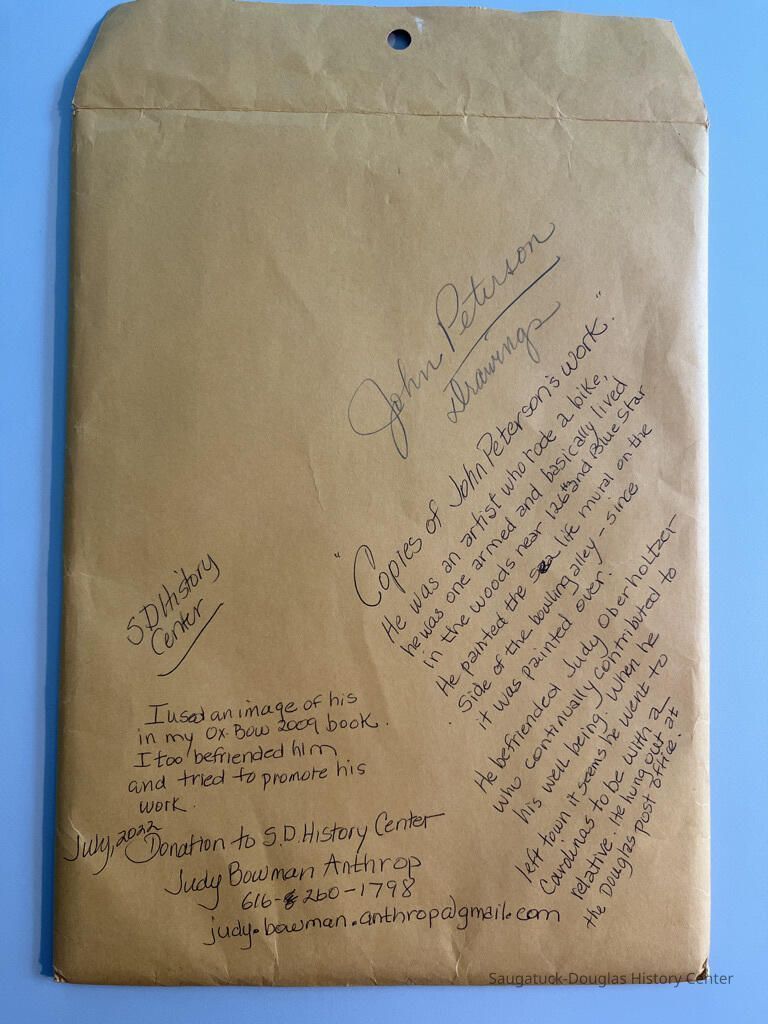 John Peterson
Drawings
"Copies of John Peterson's work."
He was an artist who rode a bike,
he was one armed and basically lived
in the woods near 126th and Blue Star
He painted the sea life mural on the
side of the bowling alley - since
it was painted over.
He befriended Judy Oberholtzer
who continually contributed to
his well being. When he
left town it seems he went to
Carolinas to be with a
relative. He hung out at
the Douglas post office.
S.D History
Center
I used an image of his
in my Ox-Bow 2009 book.
I too befriended him
and tried to promote his
work.
July, 2022
Donation to S.D. History Center
Judy Bowman Anthrop
616-260-1798
judy.bowman.anthrop@gmail.com
Saugatuck-Douglas History Center